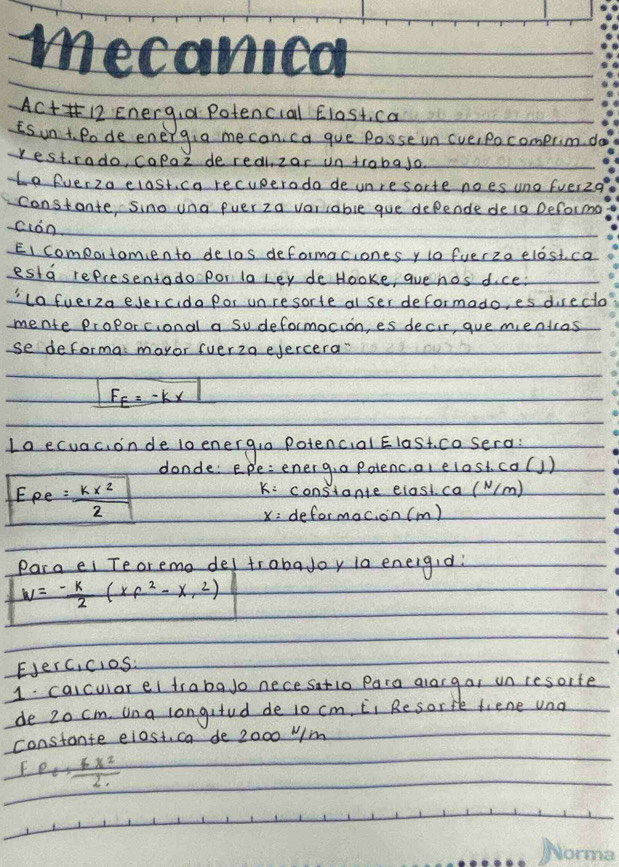 mecanica
Act #12 Energia Potencial Elastica
Es un tipo de energia mecanica que Posse un cuerpo comprimido
y estirado, capaz de realizar un trabajo.
La fuerza elastica recuperada de un resorte no es una fuerza
constante, sino una fuerza variable que depende de la Deforma-
ción.
El comportamiento de las deformaciones y la fuerza elástica
está representado por la Ley de Hooke, que nos dice:
"La fuerza ejercida por un resorte al ser deformado, es directa
mente proporcional a su deformación, es decir, que mientras
se deforma mayor fuerza ejercera"
F_E = -kx
La ecuación de la energia Potencial Elastica sera:
donde: Epe = energia Potencial elastica (J)
Epe = kx²/2
K= constante elastica (N/m)
x= deformacion (m)
Para el Teorema del trabajo y la energia:
W = -k/2 (xf² - x,²)
Ejercicios:
1. calcular el trabajo necesario para alargar un resorte
de 20 cm. una longitud de 10 cm, El Resorte tiene una
constante elastica de 2000 N/m
Epe = kx²/2.
Norma